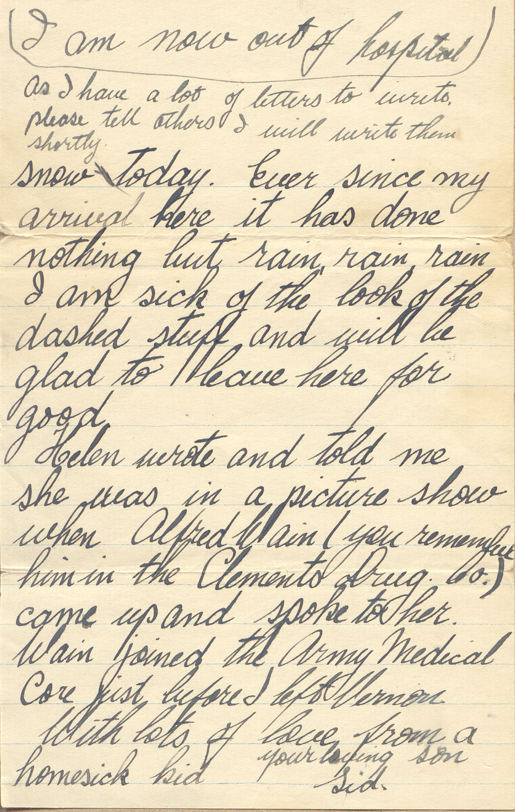 (I am now out of hospital)
As I have a lot of letters to write,
please tell others I will write them
shortly.
snow today. Ever since my
arrival here it has done
nothing but rain, rain, rain
I am sick of the look of the
dashed stuff and will be
glad to leave here for
good.
Helen wrote and told me
she was in a picture show
when Alfred Wain (you remember
him in the Clements Drug. Co.)
came up and spoke to her.
Wain joined the Army Medical
Core just before I left Vernon
With lots of love from a
homesick kid your loving son
Sid.